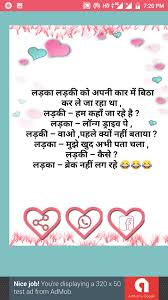 7:20 PM
लड़का लड़की को अपनी कार में बिठा
कर ले जा रहा था ,
लड़की – हम कहाँ जा रहे है ?
लड़का – लॉन्ग ड्राइव पे ,
लड़की – वाओ ,पहले क्यों नहीं बताया ?
लड़का – मुझे खुद अभी पता चला ,
लड़की – कैसे ?
लड़का – ब्रेक नहीं लग रहे 😂😂😂
Nice job! You're displaying a 320 x 50
test ad from AdMob.